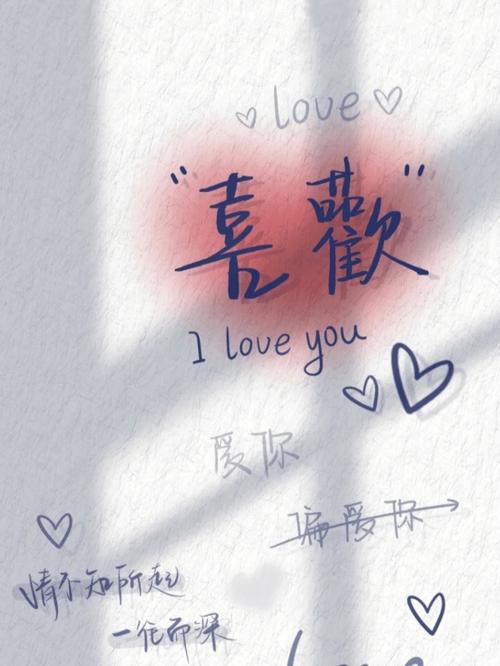 love
“喜歡”
I love you
爱你
偏爱你
情不知所起
一往而深